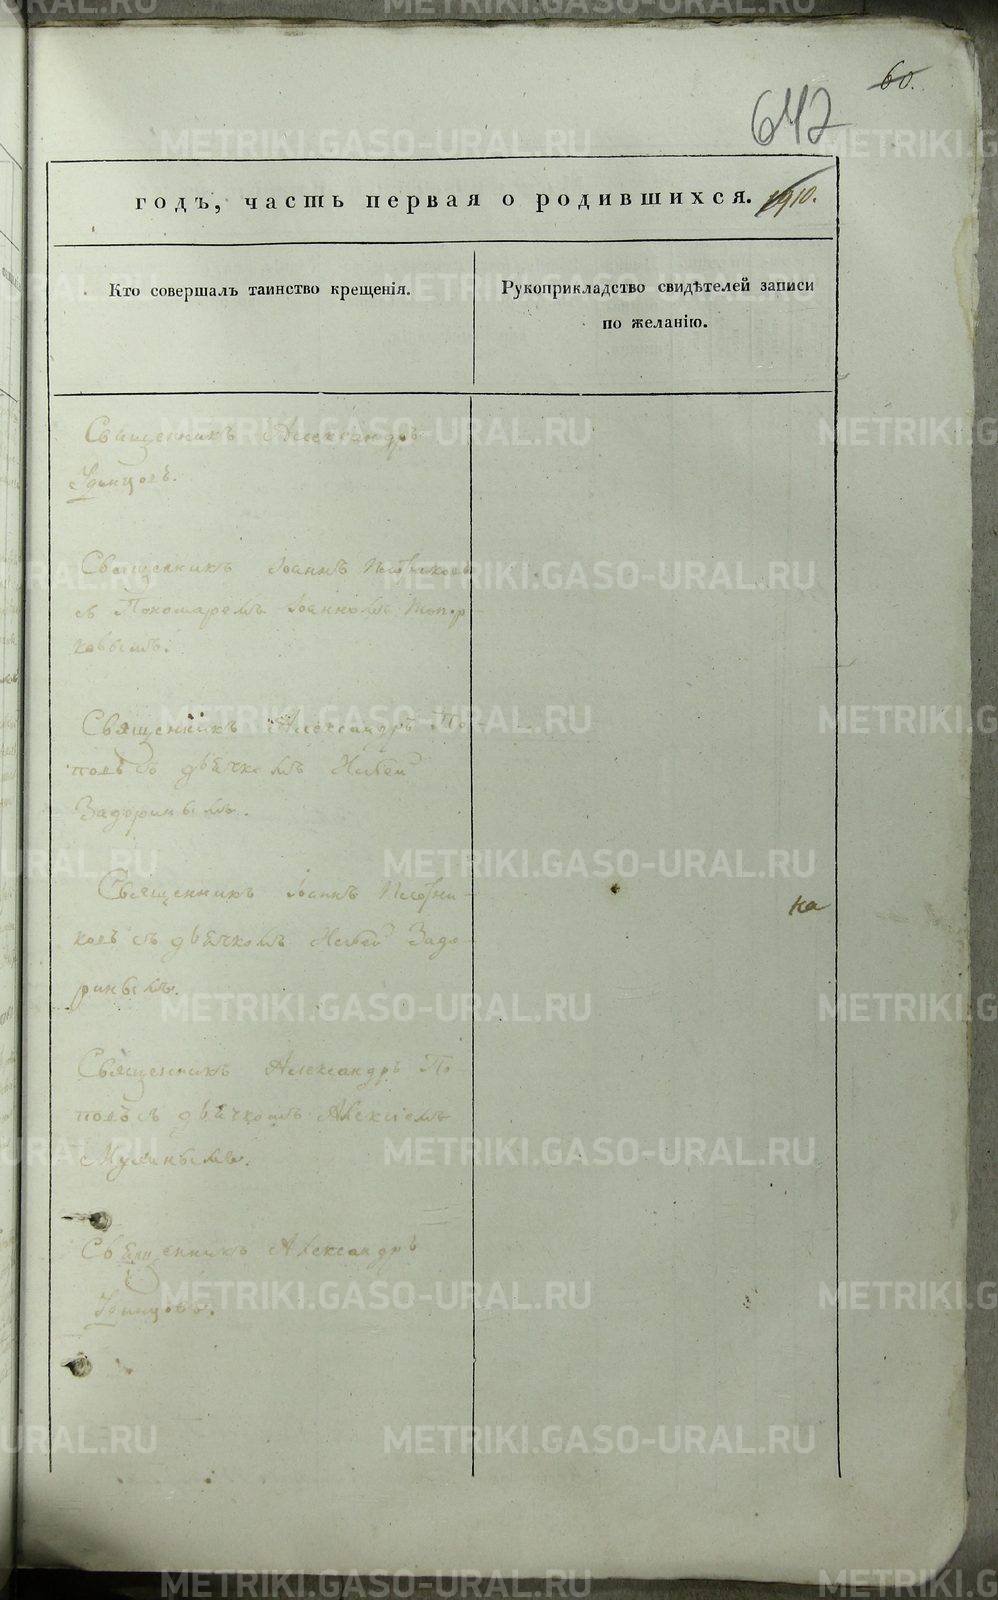 60.
642
годъ, часть первая о родившихся. 1910.
Кто совершалъ таинство крещенія.
Рукоприкладство свидѣтелей записи
по желанію.
Священникъ Александръ
Удинцовъ.
Священникъ Іоаннъ Плотниковъ
съ Пономаремъ Іоанномъ Топор
ковымъ.
Священникъ Александръ По-
повъ съ дьячкомъ
Задоринымъ.
Священникъ Іоаннъ Плотни-
ковъ съ дьячкомъ Задо-
ринымъ.
на
Священникъ Александръ По-
повъ съ дьячкомъ Алексіемъ
Священникъ Александръ
Удинцовъ.
METRIKI.GASO-URAL.RU